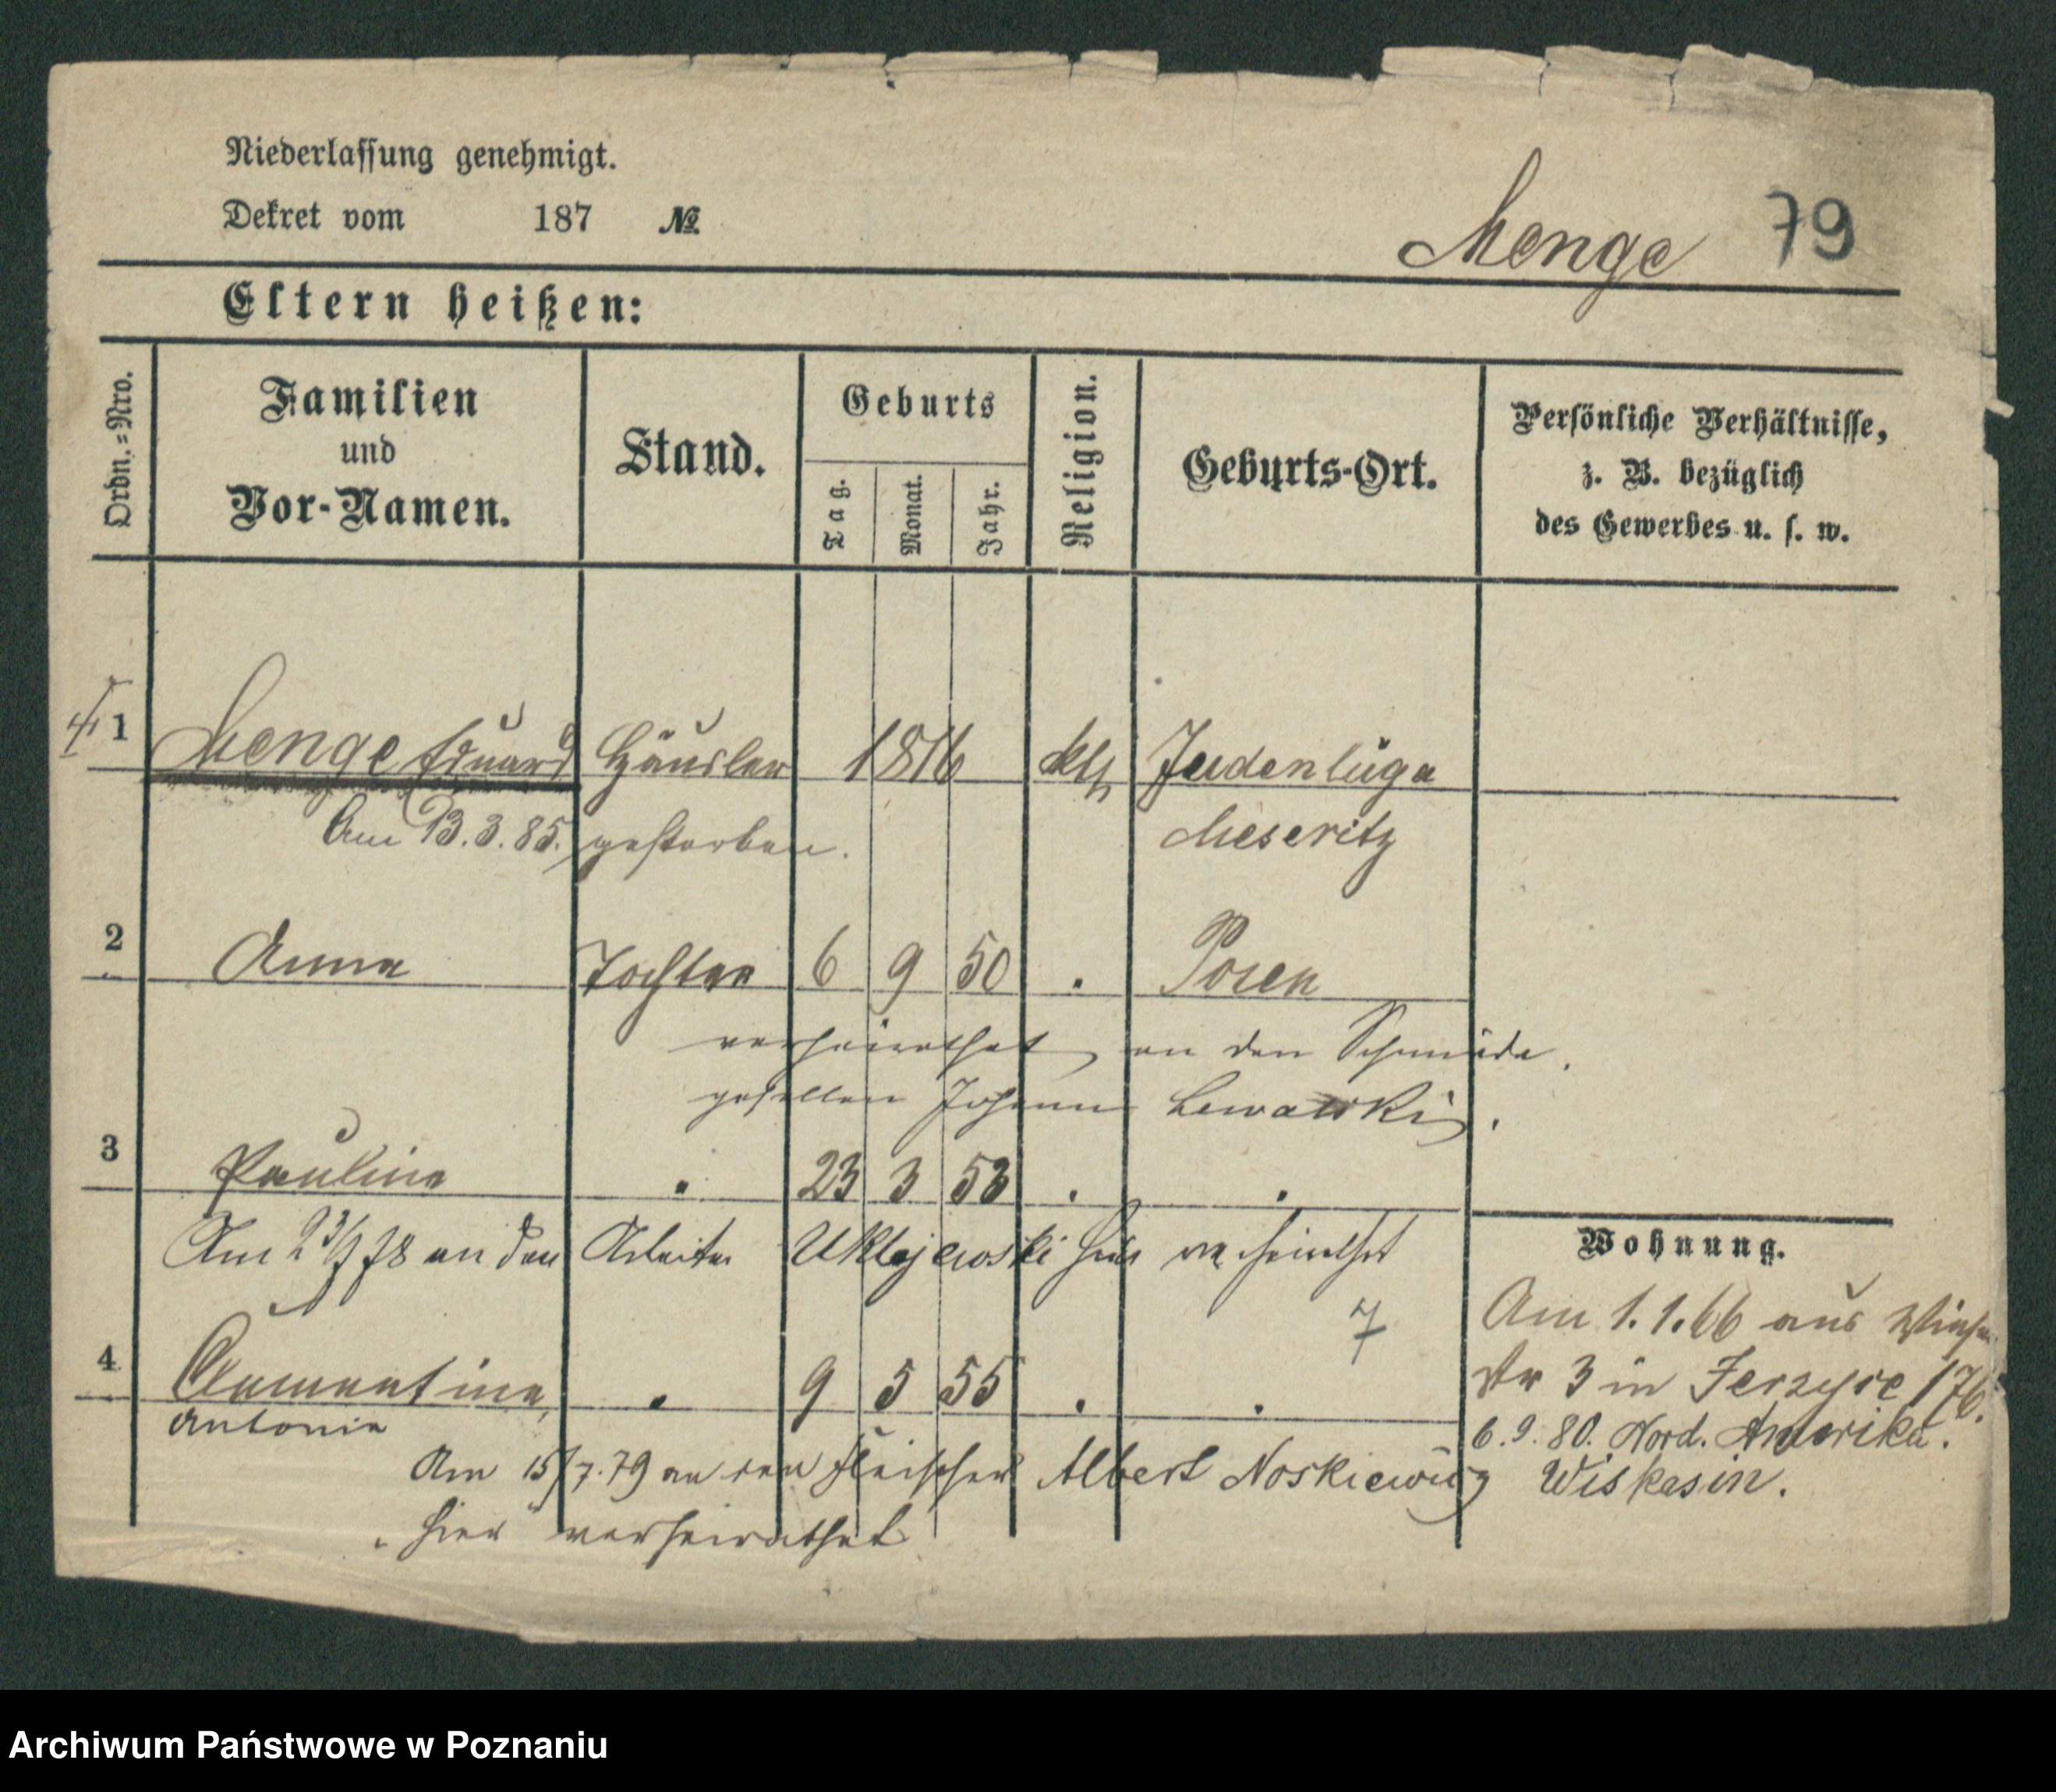 Niederlassung genehmigt.
Dekret vom 187 №
Menge 79
Eltern heißen:
Ordn.=Nro.
Familien
und
Vor-Namen.
Stand.
Geburts
Tag.
Monat.
Jahr.
Religion.
Geburts-Ort.
Persönliche Verhältnisse,
z. B. bezüglich
des Gewerbes u. s. w.
1 Menge Eduard Häusler 1816 kth Judenluga
Am 13.3.85. gestorben. Meseritz
2 Anna Tochter 6 9 50 . Posen
verheirathet an den Schmiede
gesellen Johann Lewalski.
3 Paulina . 23 3 53 . .
Am 23/ 78 an den Arbeiter Uklejewski hier verheirathet
Wohnung.
7
Am 1.1.66 aus
3 in Jerzyce 176.
4 . 9 5 55 . .
Antonie
6.9.80. Nord. Amerika.
Am 15/7.79 an den Fleischer Albert Noskiewicz
Wiskasin.
hier verheirathet
Archiwum Państwowe w Poznaniu